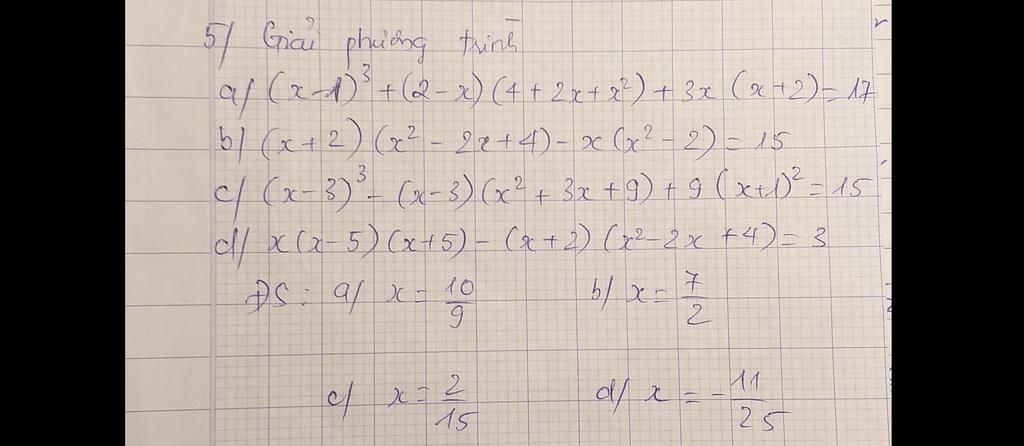 5/ Giải phương trình
a/ (x-1)³ + (2-x)(4+2x+x²) + 3x (x+2) = 17
b/ (x+2)(x² - 2x+4) - x(x² - 2) = 15
c/ (x-3)³ - (x-3)(x² + 3x + 9) + 9 (x+1)² = 15
d/ x(x-5)(x+5) - (x+2)(x² - 2x + 4) = 3
ĐS: a/ x = 10/9 b/ x = 7/2
c/ x = 2/15 d/ x = - 11/25